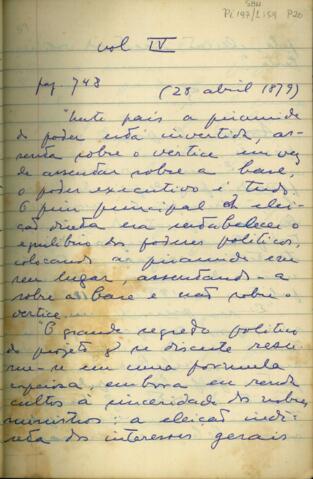 SBH
Pi 147/L 59 P20
vol IV
pag. 743 (28 abril 1879)
"Neste país a piramide
do poder está invertida, as-
senta sobre o vertice em vez
de assentar sobre a base,
o poder executivo é tudo
O fim principal da elei-
ção direta era restabelecer o
equilibrio dos poderes politicos,
colocando a piramide em
seu lugar, assentando-a
sobre a base e não sobre o
vertice.
"O grande segredo politico
do projeto q se discute resu-
me-se em uma formula
embora eu renda
cultos à sinceridade dos nobres
ministros: a eleição indi-
reta dos interesses gerais